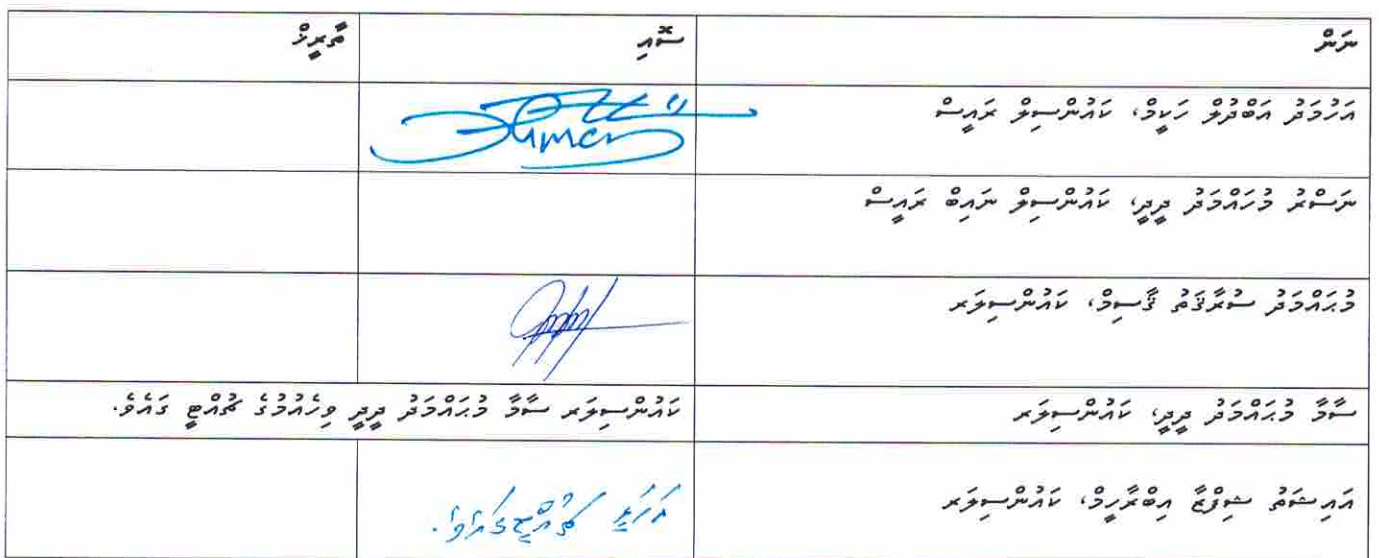 ނަން ސޮއި ތާރީޚު
އަހުމަދު އަބްދުލް ހަކީމް، ކައުންސިލް ރައީސް
ނަސްރު މުހައްމަދު ދީދީ، ކައުންސިލް ނައިބް ރައީސް
މުޙައްމަދު ސުރާޤަތު ޤާސިމް، ކައުންސިލަރ
ސާމާ މުޙައްމަދު ދީދީ، ކައުންސިލަރ ކައުންސިލަރ ސާމާ މުޙައްމަދު ދީދީ ވިހެއުމުގެ ޗުއްޓީ ގައެވެ.
އައިޝަތު ޝިފްޒާ އިބްރާހީމް، ކައުންސިލަރ ޗުއްޓީގައެވެ.